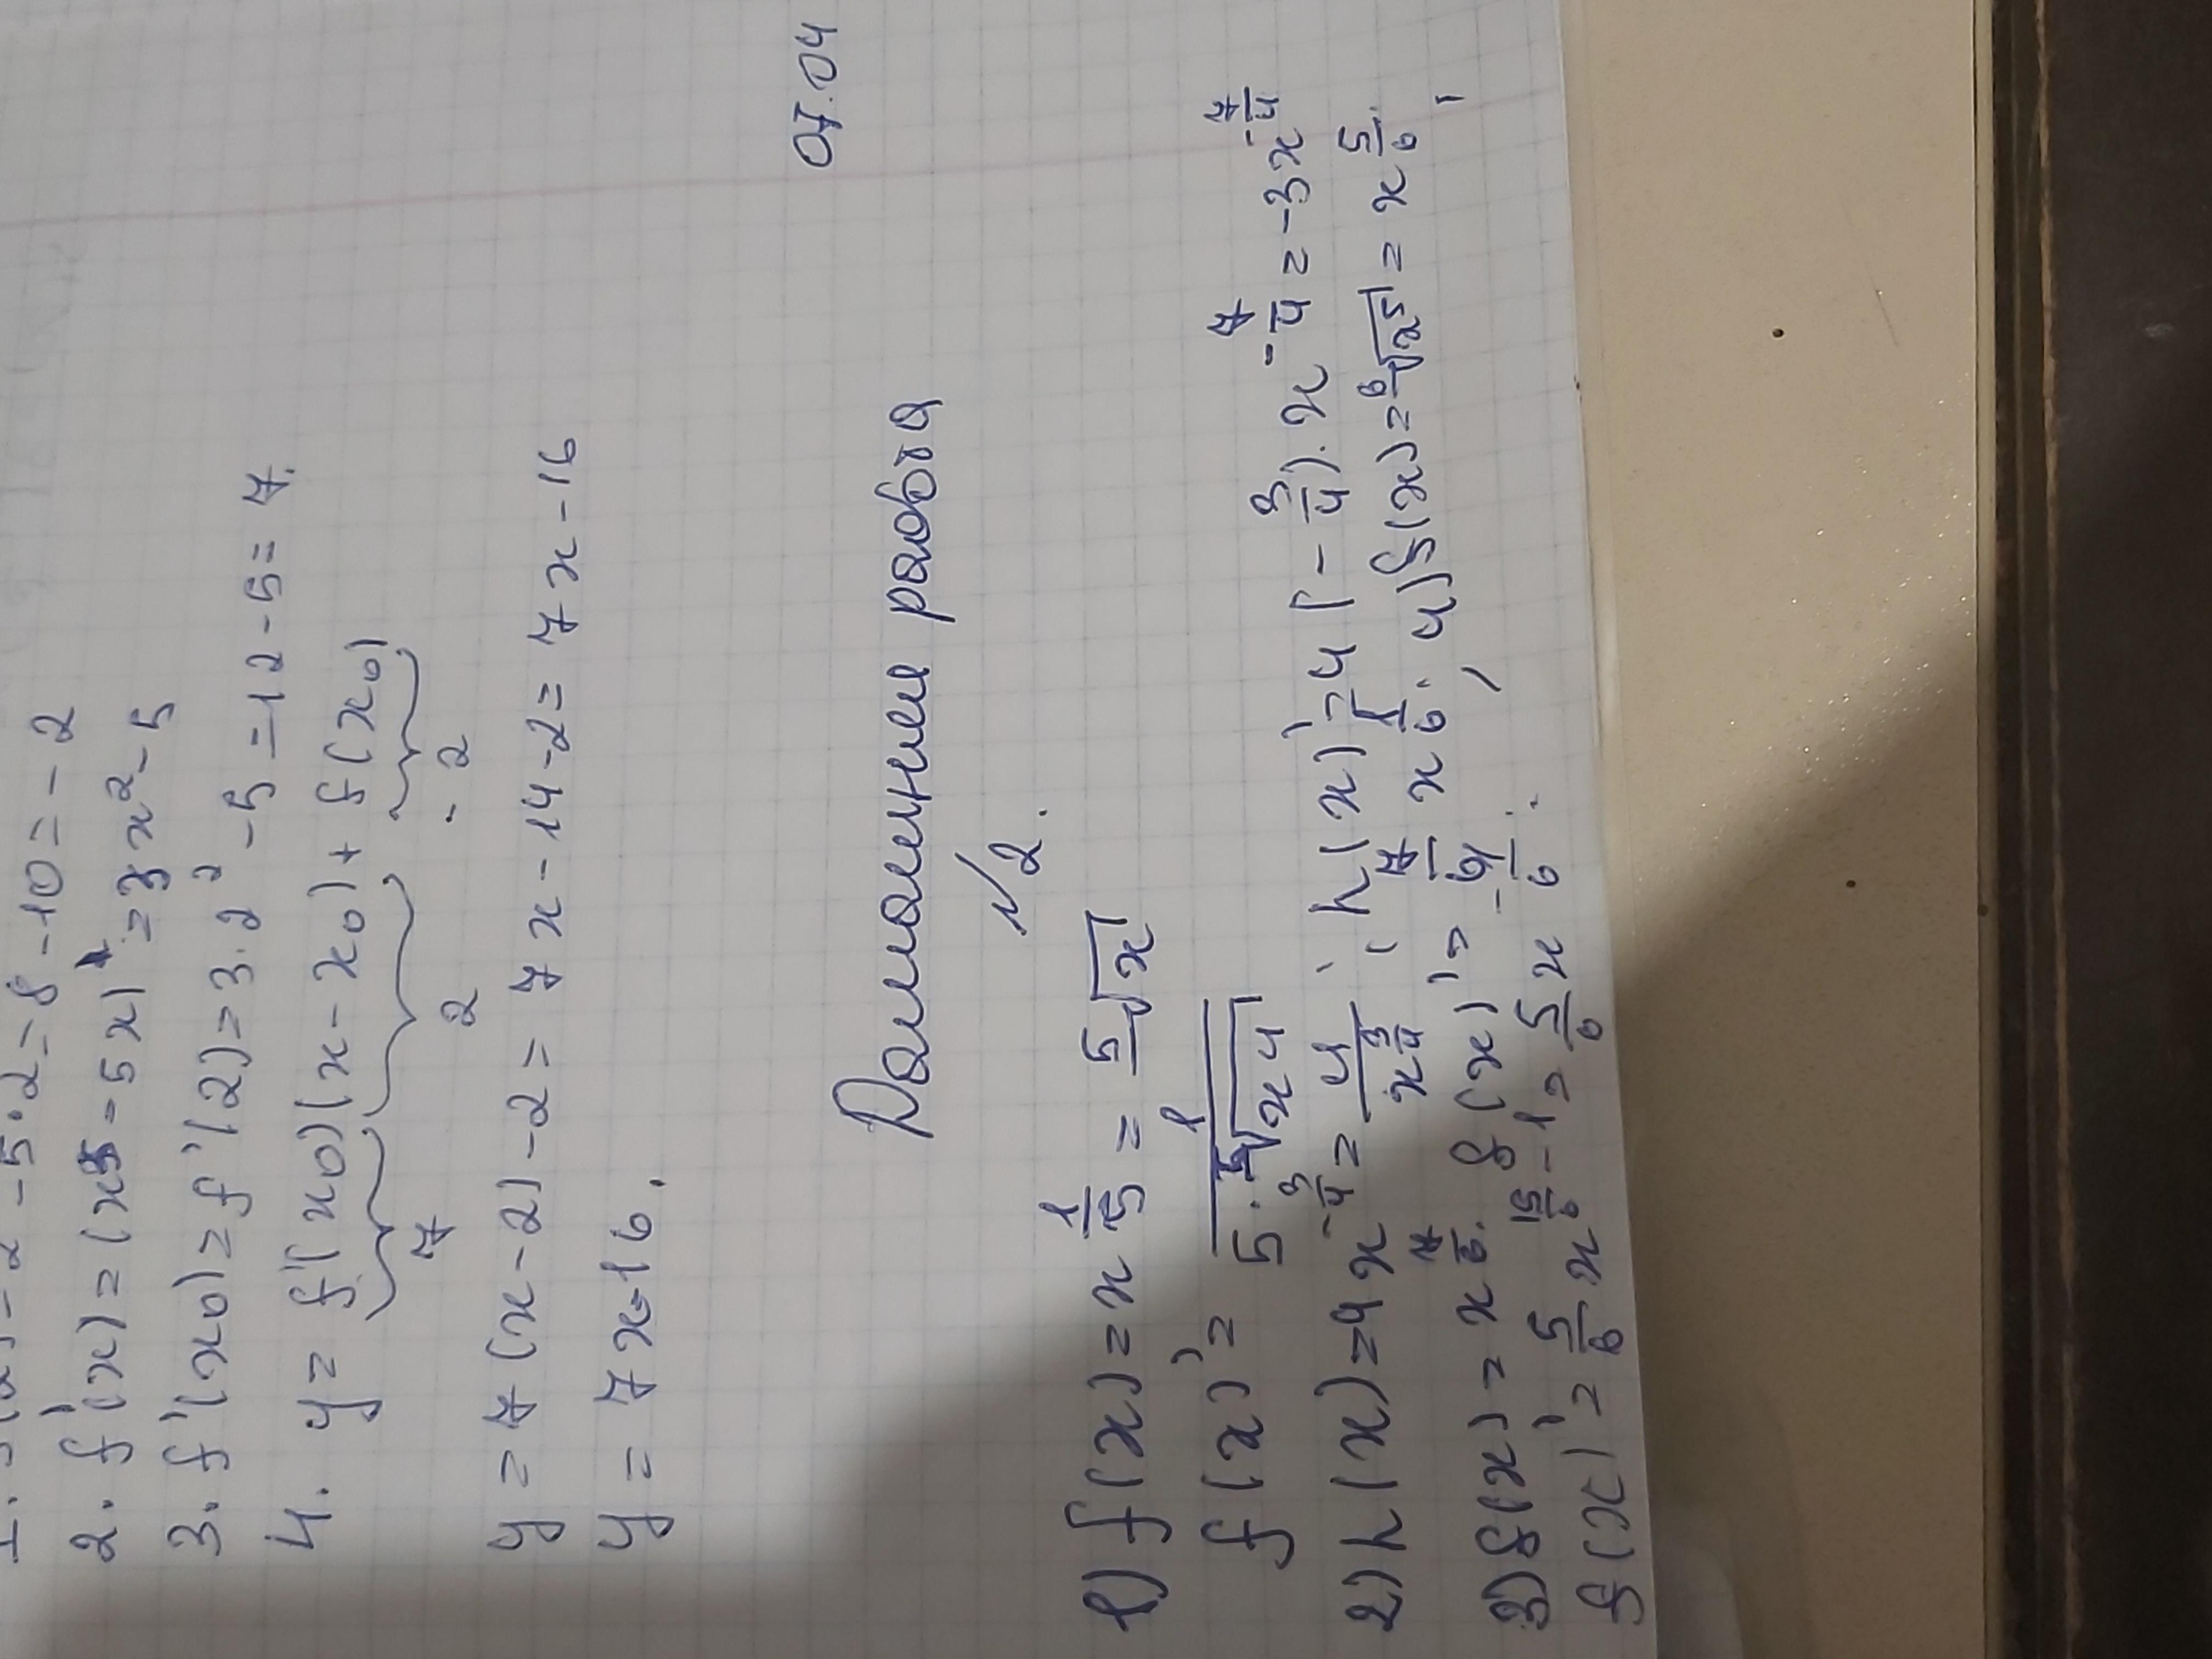 2. f'(x) = (x³ - 5x)' = 3x² - 5
3. f'(x₀) = f'(2) = 3·2² - 5 = 12 - 5 = 7.
4. y = f'(x₀)(x - x₀) + f(x₀)
7 2 -2
y = 7(x - 2) - 2 = 7x - 14 - 2 = 7x - 16
y = 7x - 16.
07.04
Домашняя работа
№2.
1) f(x) = x^(1/5) = ⁵√x
f(x)' = 1/(5·⁵√x⁴)
2) h(x) = 4x^(-3/4) = 4/x^(3/4), h(x)' = 4(-3/4)·x^(-7/4) = -3x^(-7/4)
3) f(x) = x^(7/6). f(x)' = 7/6 x^(1/6). 4) f(x) = ⁶√x⁵ = x^(5/6).
f(x)' = 5/6 x^(5/6 - 1) = 5/6 x^(-1/6).